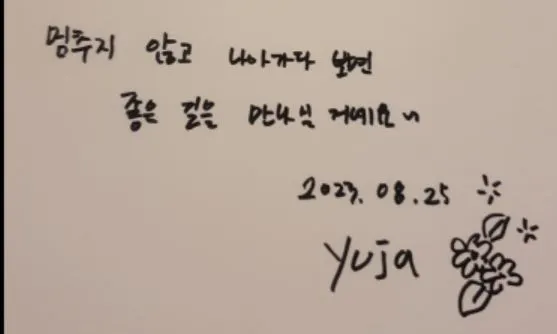 멈추지 않고 나아가다 보면
좋은 길을 만나실 거예요~
2023.08.25
yuja